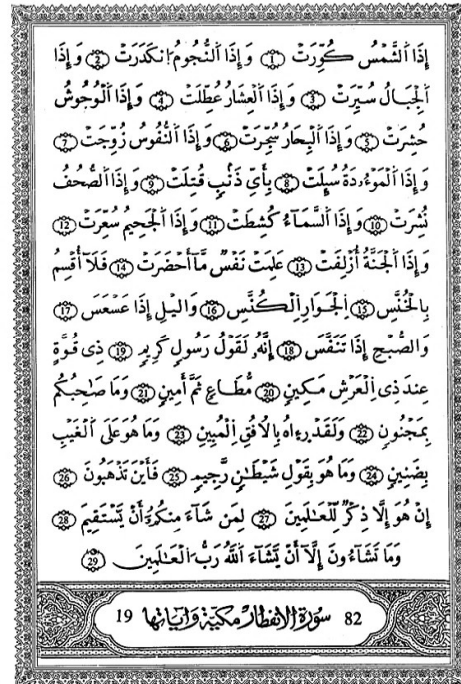 إِذَا اَلشَّمْسُ كُوِّرَتْ 1 وَإِذَا اَلنُّجُومُ اُنكَدَرَتْ 2 وَإِذَا
اَلْجِبَالُ سُيِّرَتْ 3 وَإِذَا اَلْعِشَارُ عُطِّلَتْ 4 وَإِذَا اَلْوُحُوشُ
حُشِرَتْ 5 وَإِذَا اَلْبِحَارُ سُجِّرَتْ 6 وَإِذَا اَلنُّفُوسُ زُوِّجَتْ 7
وَإِذَا اَلْمَوْءُۥدَةُ سُئِلَتْ 8 بِأَيِّ ذَنۢبٖ قُتِلَتْ 9 وَإِذَا اَلصُّحُفُ
نُشِرَتْ 10 وَإِذَا اَلسَّمَآءُ كُشِطَتْ 11 وَإِذَا اَلْجَحِيمُ سُعِّرَتْ 12
وَإِذَا اَلْجَنَّةُ أُزْلِفَتْ 13 عَلِمَتْ نَفْسٞ مَّآ أَحْضَرَتْ 14 فَلَآ أُقْسِمُ
بِالْخُنَّسِ 15 اِلْجَوَارِ اِلْكُنَّسِ 16 وَاليْلِ إِذَا عَسْعَسَ 17
وَالصُّبْحِ إِذَا تَنَفَّسَ 18 إِنَّهُۥ لَقَوْلُ رَسُولٖ كَرِيمٖ 19 ذِي قُوَّةٍ
عِندَ ذِي اِلْعَرْشِ مَكِينٖ 20 مُّطَاعٖ ثَمَّ أَمِينٖ 21 وَمَا صَٰحِبُكُم
بِمَجْنُونٖ 22 وَلَقَدْ رَءِاهُ بِالُافُقِ اِلْمُبِينِ 23 وَمَا هُوَ عَلَى اَلْغَيْبِ
بِضَنِينٖ 24 وَمَا هُوَ بِقَوْلِ شَيْطَٰنٖ رَّجِيمٖ 25 فَأَيْنَ تَذْهَبُونَ 26
إِنْ هُوَ إِلَّا ذِكْرٞ لِّلْعَٰلَمِينَ 27 لِمَن شَآءَ مِنكُمُۥٓ أَنْ يَّسْتَقِيمَ 28
وَمَا تَشَآءُونَ إِلَّآ أَنْ يَّشَآءَ اَللَّهُ رَبُّ اُلْعَٰلَمِينَ 29
82 سورة الانفطار مكية وآياتها 19